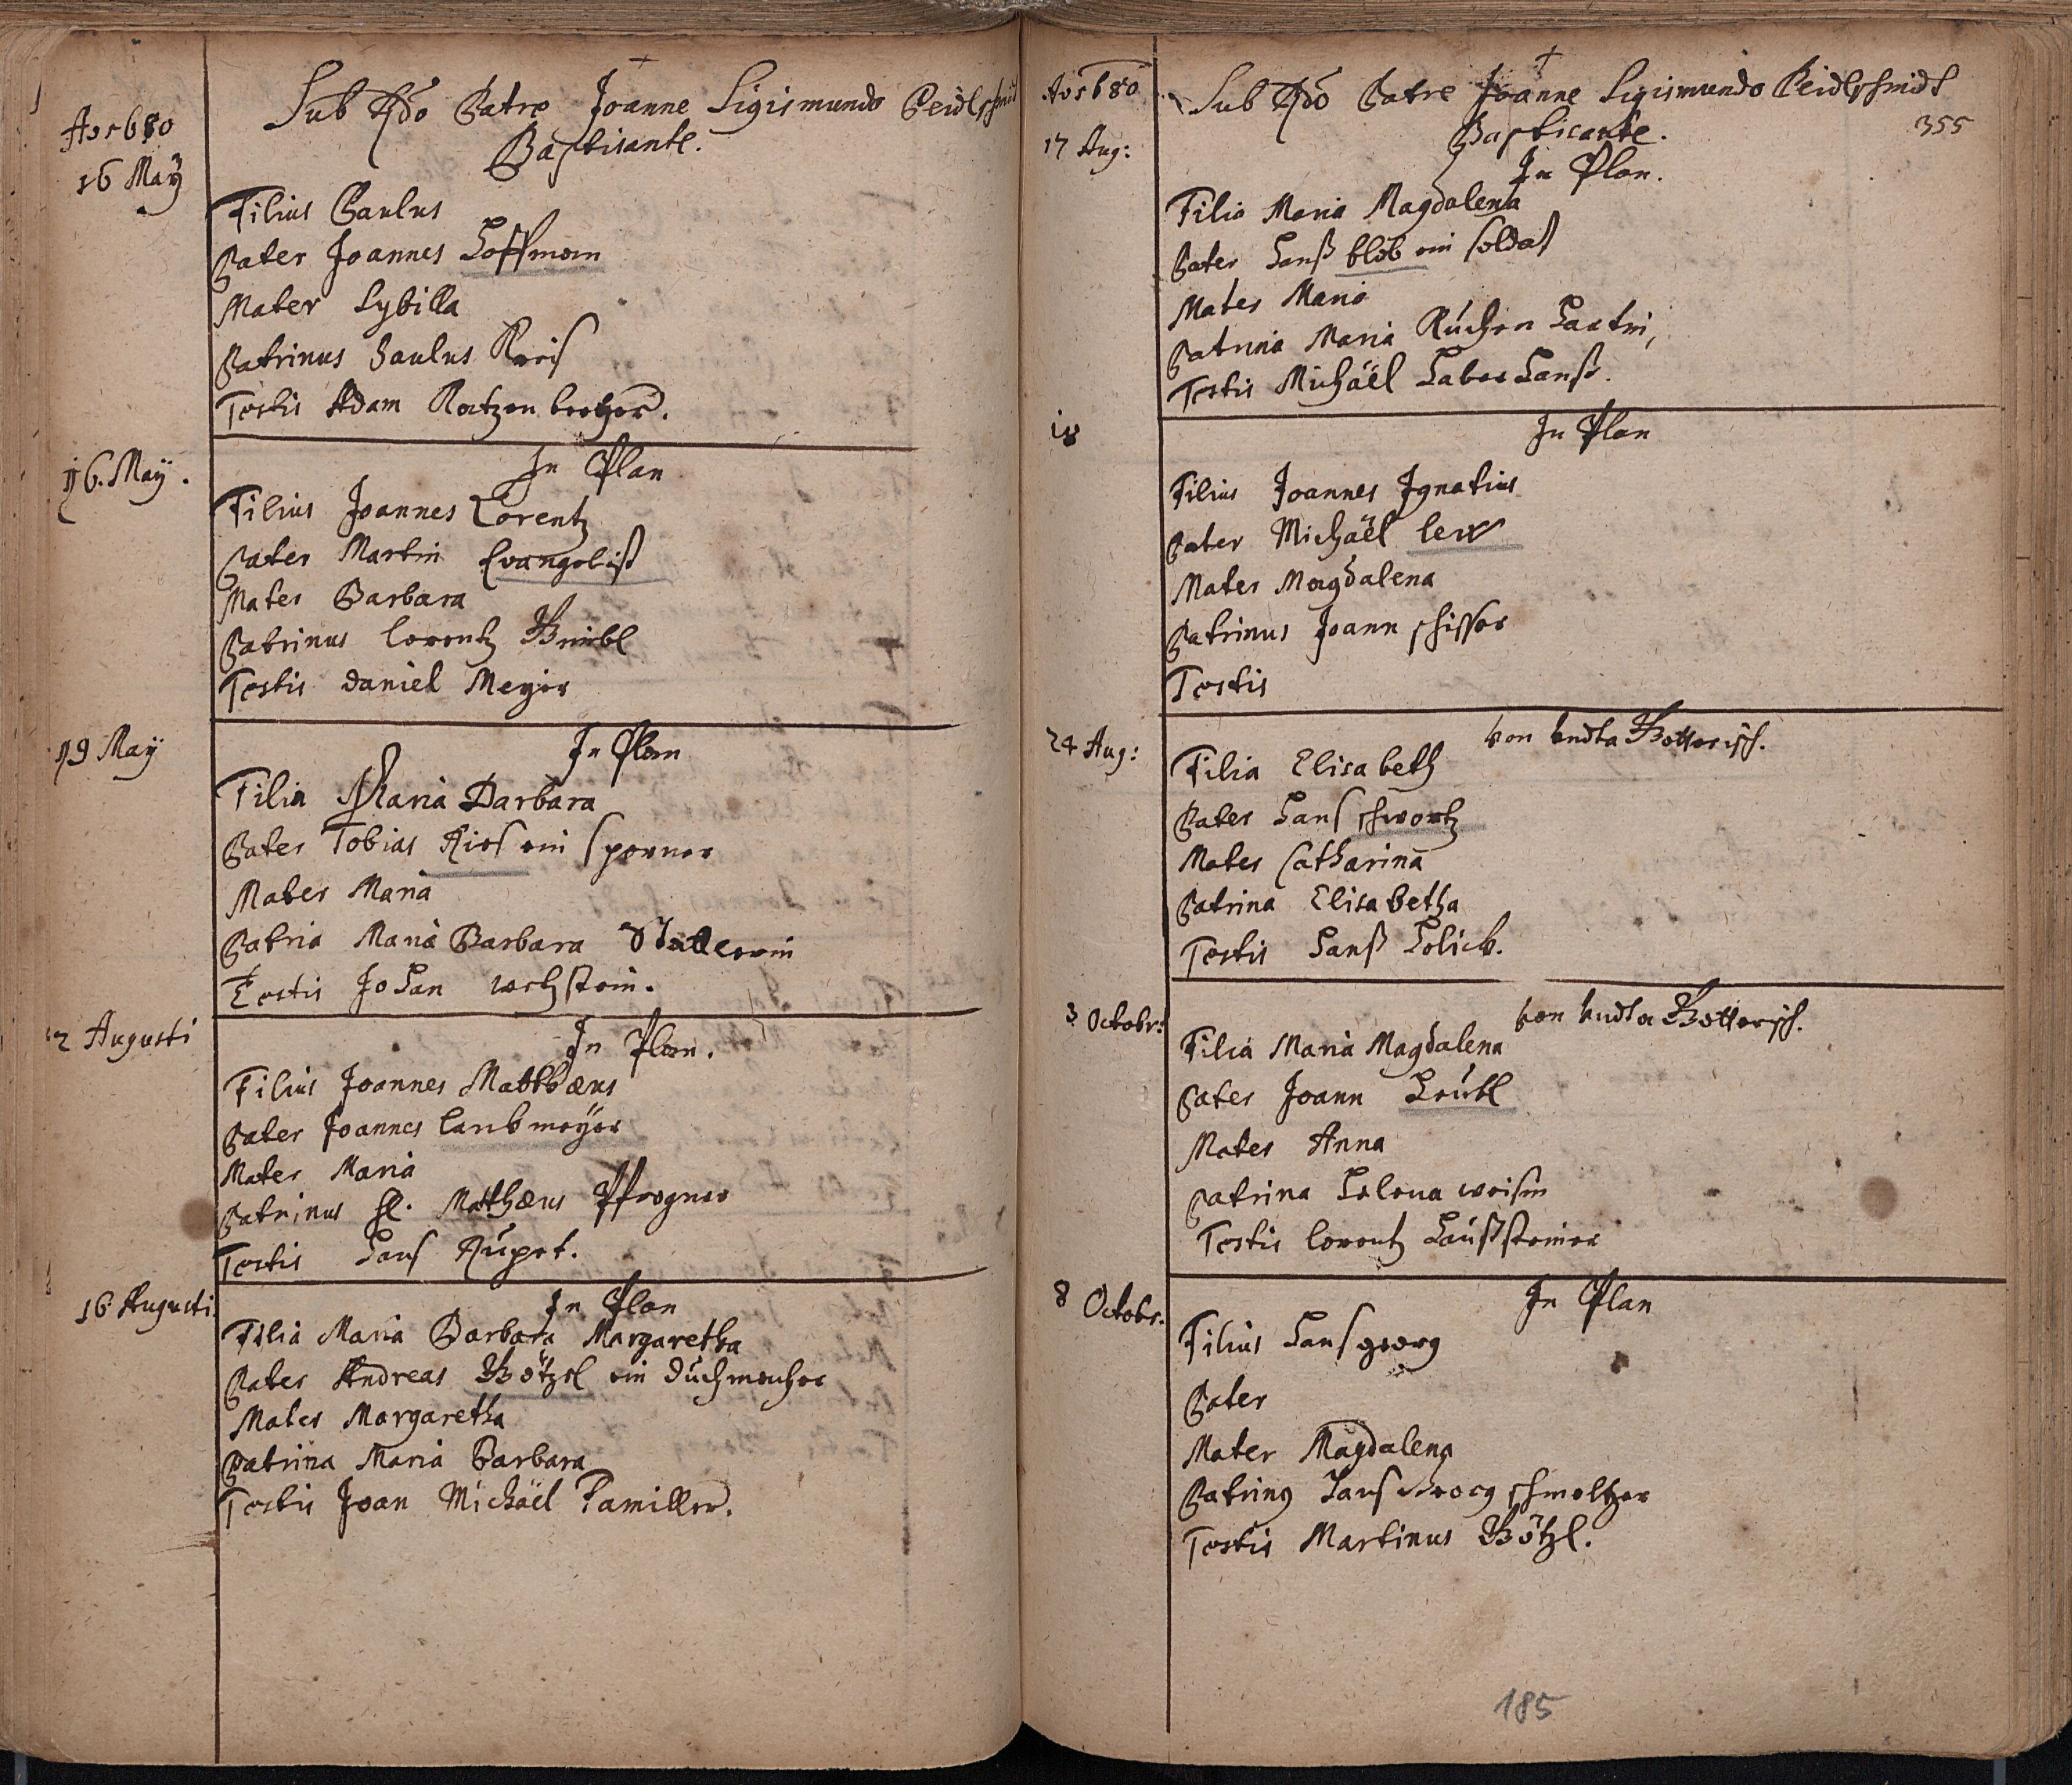 Ao 1680
16 May
Sub Rdo Patre Joanne Sigismundo Peidlschmidt
Baptisante.
Filius Paulus
Pater Joannes Hoffman
Mater Sybilla
Patrinus Paulus Reis
Testis Adam Ratzenberger.
16. May.
In Plan
Filius Joannes Lorentz
Pater Martin Evangelist
Mater Barbara
Patrinus Lorentz
Testis Daniel Meyer
19 May
In Plan
Filia Maria Barbara
Pater Tobias Ries ein Sporner
Mater Maria
Patria Maria Barbara
Testis Johan wetzstein.
2 Augusti
In Plan.
Filius Joannes Matthæus
Pater Joannes Laubmeÿer
Mater Maria
Patrinus H. Matthæus Pfrogner
Testis Hans Rupert.
16 Augusti
In Plan
Filia Maria Barbara Margaretha
Pater Andreas Götzel ein Duchmacher
Mater Margaretha
Patrina Maria Barbara
Testis Joan Michäel Pamiller.
Ao 1680
17 Aug:
Sub Rdo Patre Joanne Sigismundo Peidlschmidt
355
Baptisante.
In Plan.
Filia Maria Magdalena
Pater Hanß blöb ein soldat
Mater Maria
Patrina Maria
Testis Michäel
18
In Plan
Filius Joannes Ignatius
Pater Michäel
Mater Magdalena
Patrinus Joann schisser
Testis
24 Aug:
von Gotterisch.
Filia Elisabeth
Pater Hans schwartz
Mater Catharina
Patrina Elisabetha
Testis Hanß Holick.
3 Octobr:
von Gotterisch.
Filia Maria Magdalena
Pater Joann Heubl
Mater Anna
Patrina Helena weisin
Testis Lorentz Haußsteiner
8 Octobr.
In Plan
Filius Hans georg
Pater
Mater Magdalena
Patrinus Hans Georg schmeltzer
Testis Martinus Götzl.
185